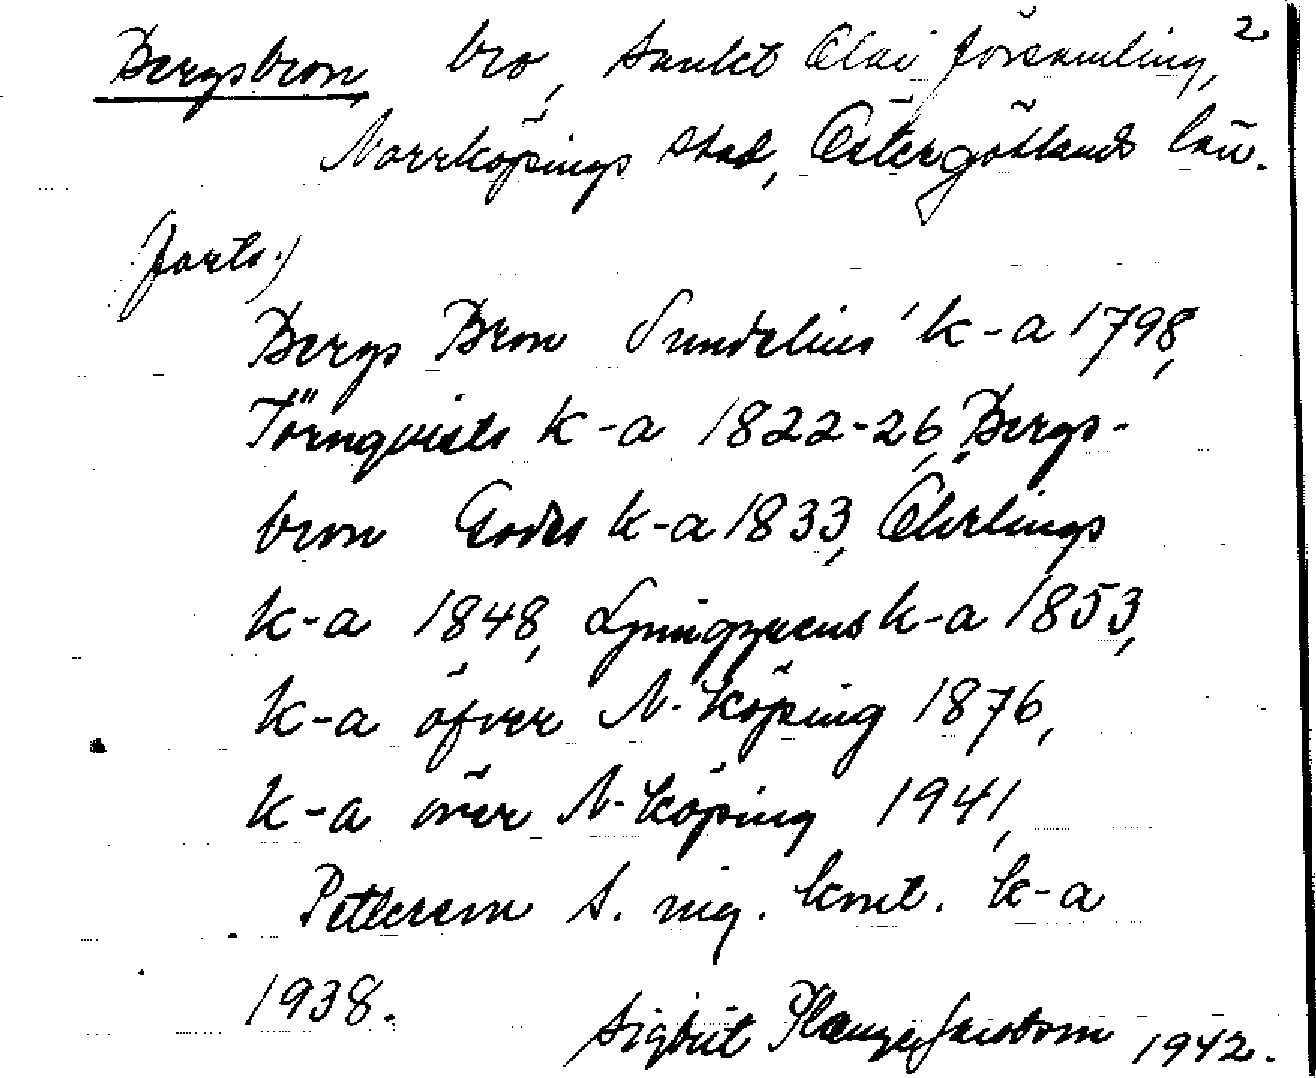 Bergsbron, bro, Sankt Olai församling, 2
Norrköpings stad, Östergötlands län.
(forts.)
Bergs Bron Sundelius' k-a 1798,
Törnqvists k-a 1822-26, Bergs-
bron Godes k-a 1833, Öhrlings
k-a 1848, Ljunggrens k-a 1853,
k-a öfver N-köping 1876,
k-a över N-köping 1941,
Petterson S. k-a
1938.
Sigbrit 1942.